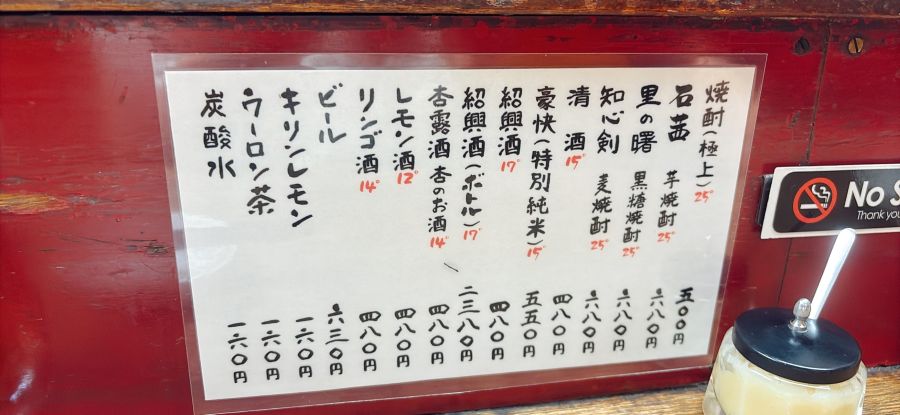 焼酎(極上)25° 五〇〇円
石茜 芋焼酎25° 六八〇円
里の曙 黒糖焼酎25° 六八〇円
知心剣 麦焼酎25° 六八〇円
清酒15° 四八〇円
豪快(特別純米)15° 五五〇円
紹興酒17° 四八〇円
紹興酒(ボトル)17° 二三八〇円
杏露酒 杏のお酒14° 四八〇円
レモン酒12° 四八〇円
リンゴ酒14° 四八〇円
ビール 六三〇円
キリンレモン 一六〇円
ウーロン茶 一六〇円
炭酸水 一六〇円
No S
Thank you